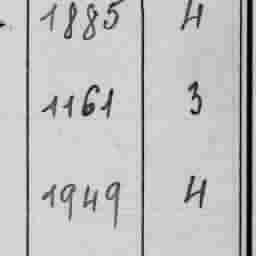 1885 4
1161 3
1949 4